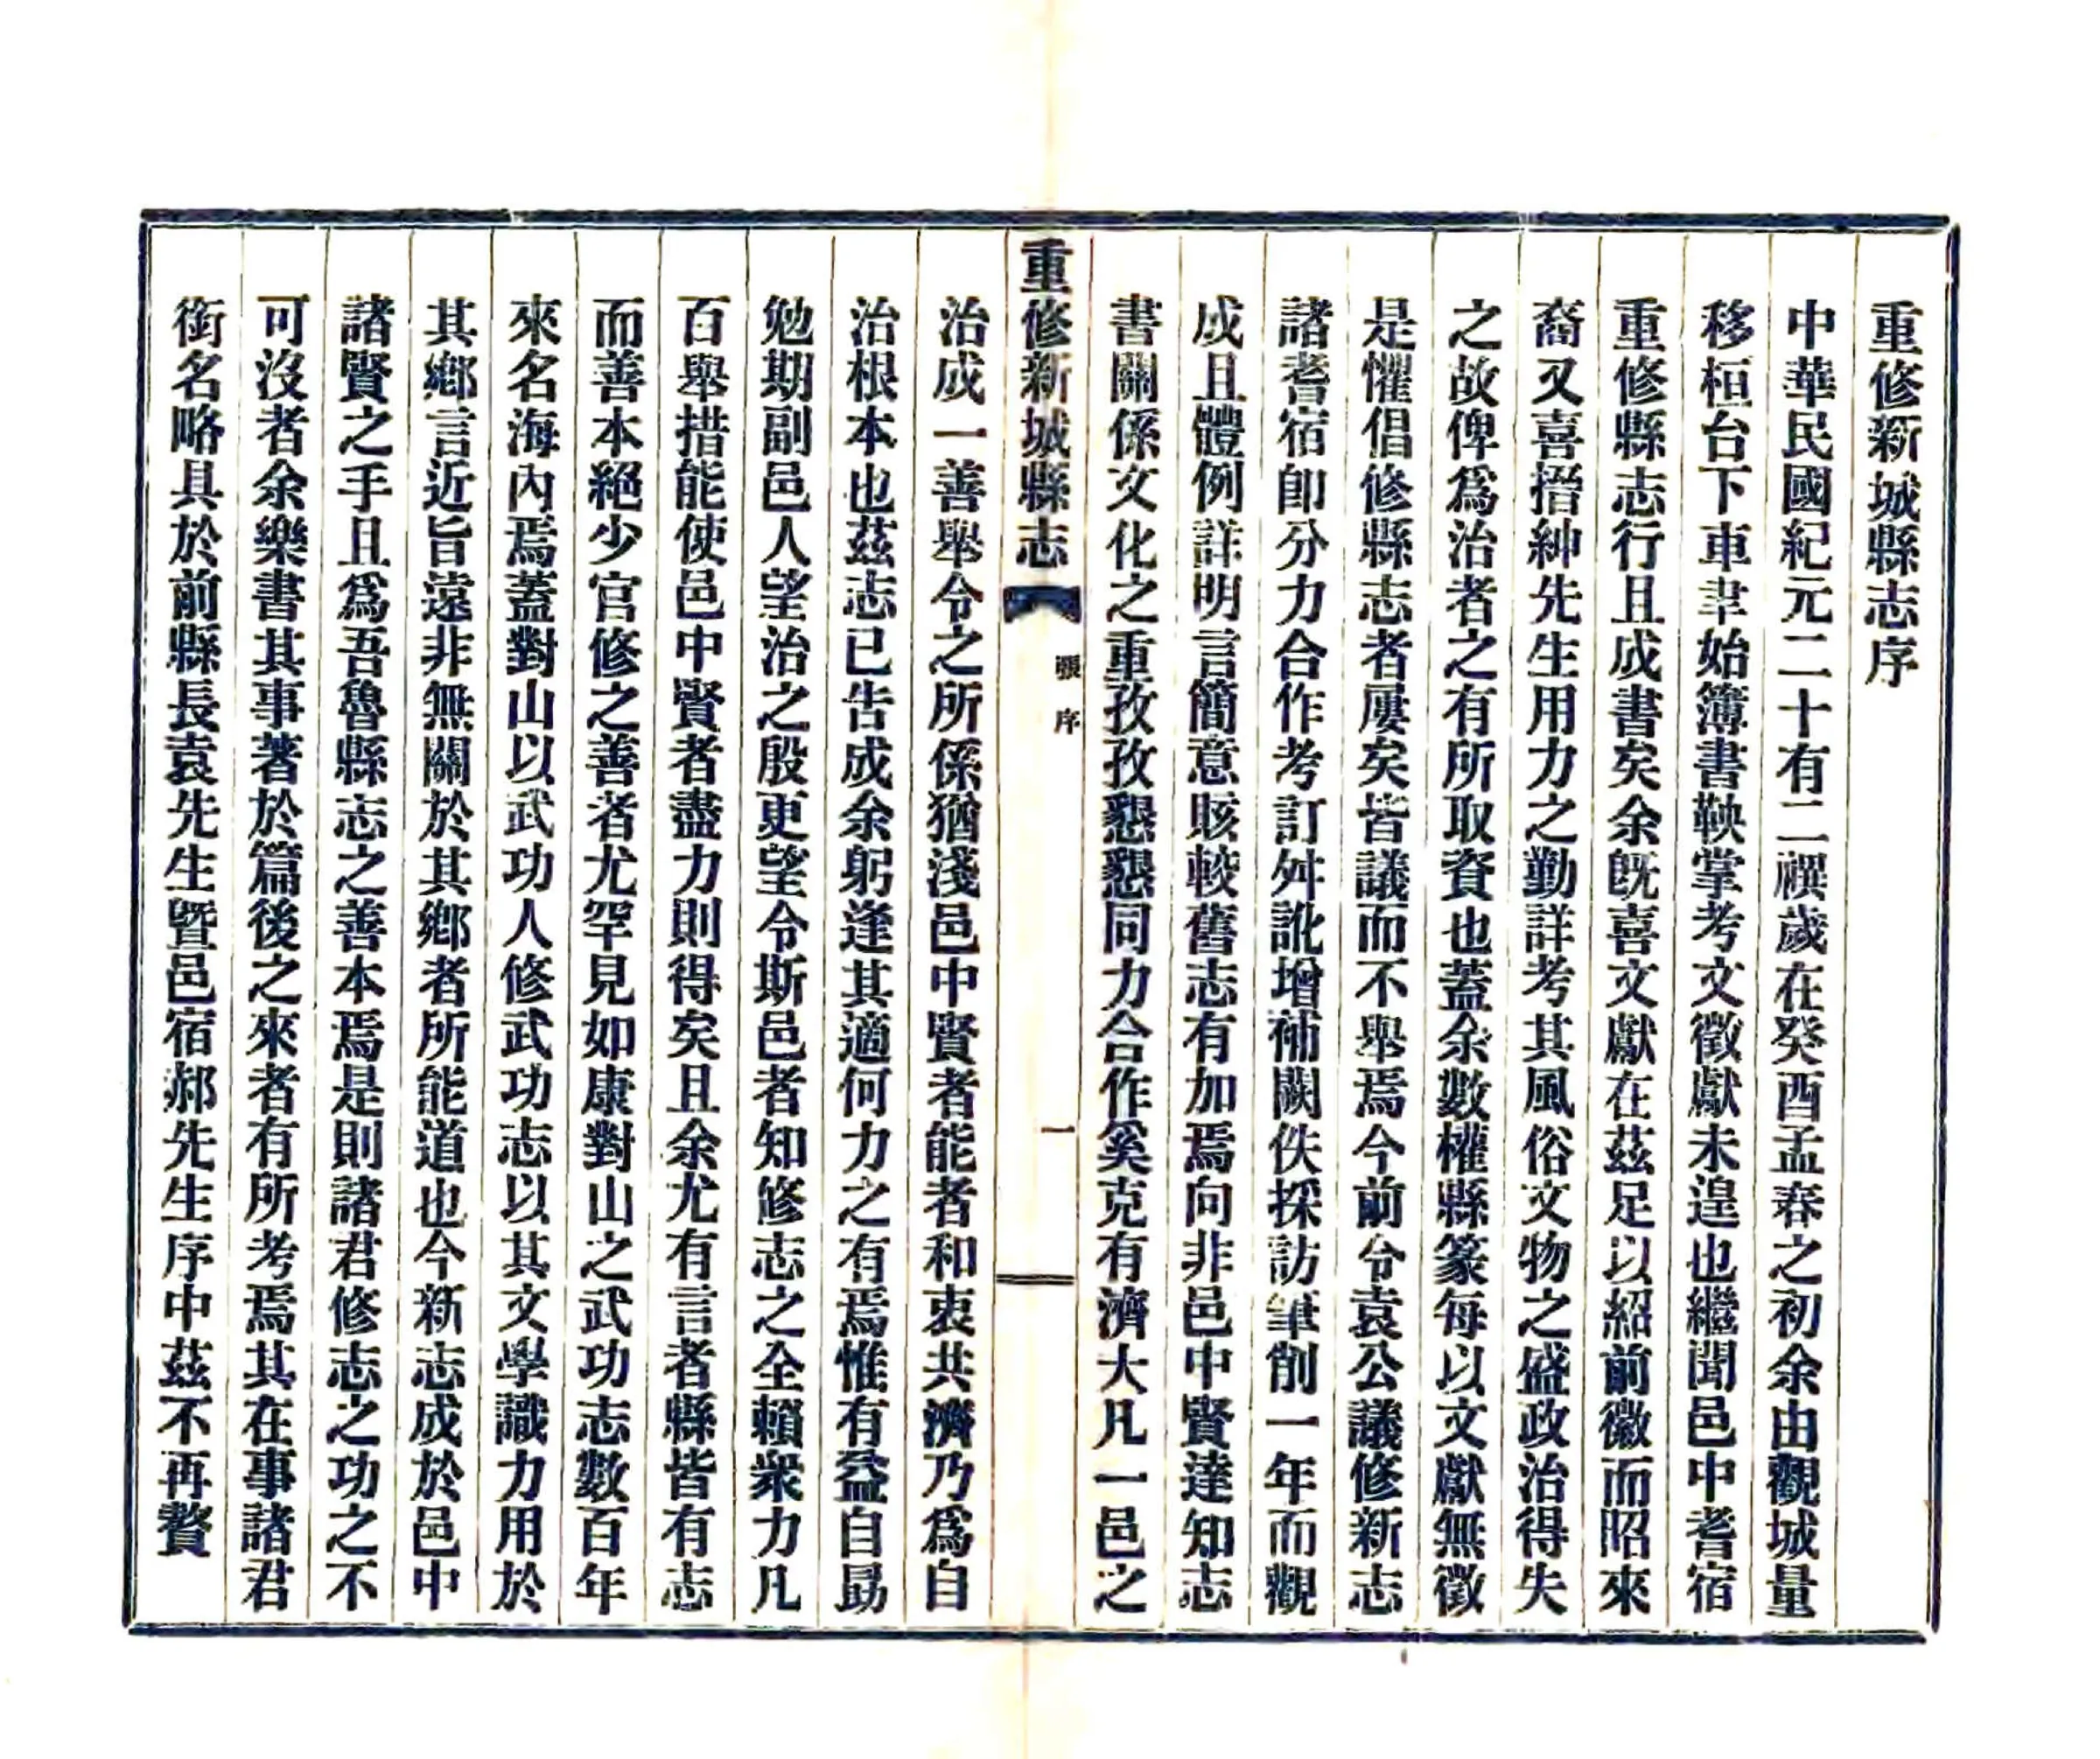 重修新城縣志序
中華民國紀元二十有二禩歲在癸酉孟春之初余由觀城量
移桓台下車聿始簿書鞅掌考文徵獻未遑也繼聞邑中耆宿
重修縣志行且成書矣余旣喜文獻在茲足以紹前徽而昭來
裔又喜搢紳先生用力之勤詳考其風俗文物之盛政治得失
之故俾爲治者之有所取資也蓋余數權縣篆每以文獻無徵
是懼倡修縣志者屢矣皆議而不舉焉今前令袁公議修新志
諸耆宿卽分力合作考訂舛訛增補闕佚採訪筆削一年而觀
成且體例詳明言簡意賅較舊志有加焉向非邑中賢達知志
書關係文化之重孜孜懇懇同力合作奚克有濟大凡一邑之
重修新城縣志
張序
一
治成一善舉令之所係猶淺邑中賢者能者和衷共濟乃爲自
治根本也茲志已告成余躬逢其適何力之有焉惟有益自勗
勉期副邑人望治之殷更望令斯邑者知修志之全賴衆力凡
百舉措能使邑中賢者盡力則得矣且余尤有言者縣皆有志
而善本絕少官修之善者尤罕見如康對山之武功志數百年
來名海內焉蓋對山以武功人修武功志以其文學識力用於
其鄉言近旨遠非無關於其鄉者所能道也今新志成於邑中
諸賢之手且爲吾魯縣志之善本焉是則諸君修志之功之不
可沒者余樂書其事著於篇後之來者有所考焉其在事諸君
銜名略具於前縣長袁先生暨邑宿郝先生序中茲不再贅